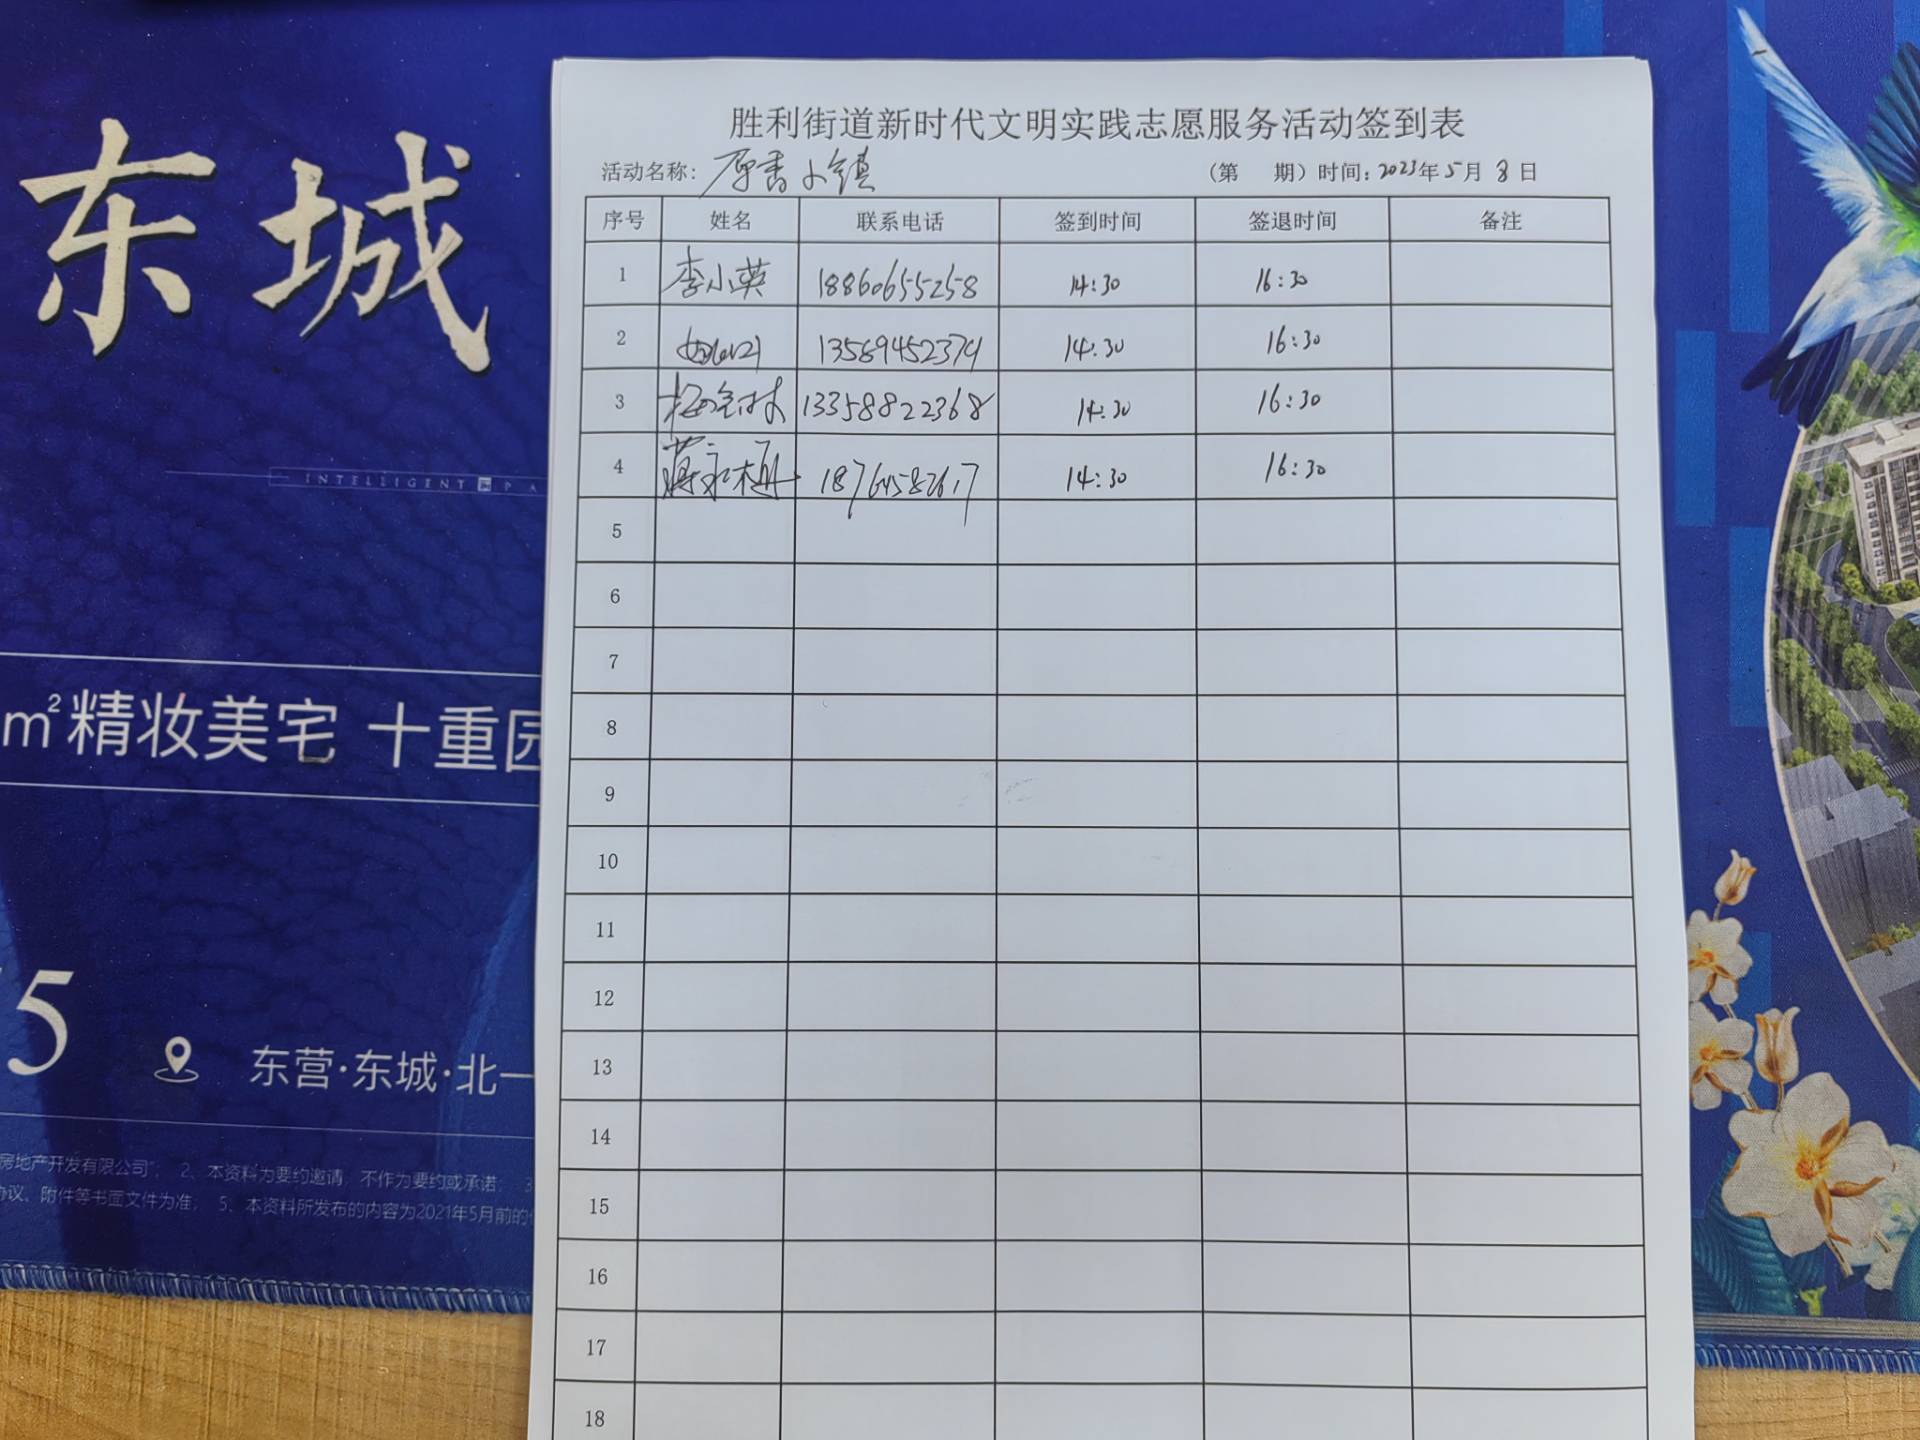 东城
INTELLIGENT PA
m²精妆美宅 十重园
5
东营·东城·北一
房地产开发有限公司"； 2、本资料为要约邀请，不作为要约或承诺； 3
协议、附件等书面文件为准； 5、本资料所发布的内容为2021年5月前的
胜利街道新时代文明实践志愿服务活动签到表
活动名称：原香小镇 （第 期）时间：2023年5月8日
序号 姓名 联系电话 签到时间 签退时间 备注
1 李小英 18860655258 14:30 16:30
2 13589452379 14:30 16:30
3 13358822368 14:30 16:30
4 蒋永植 18764582617 14:30 16:30
5
6
7
8
9
10
11
12
13
14
15
16
17
18